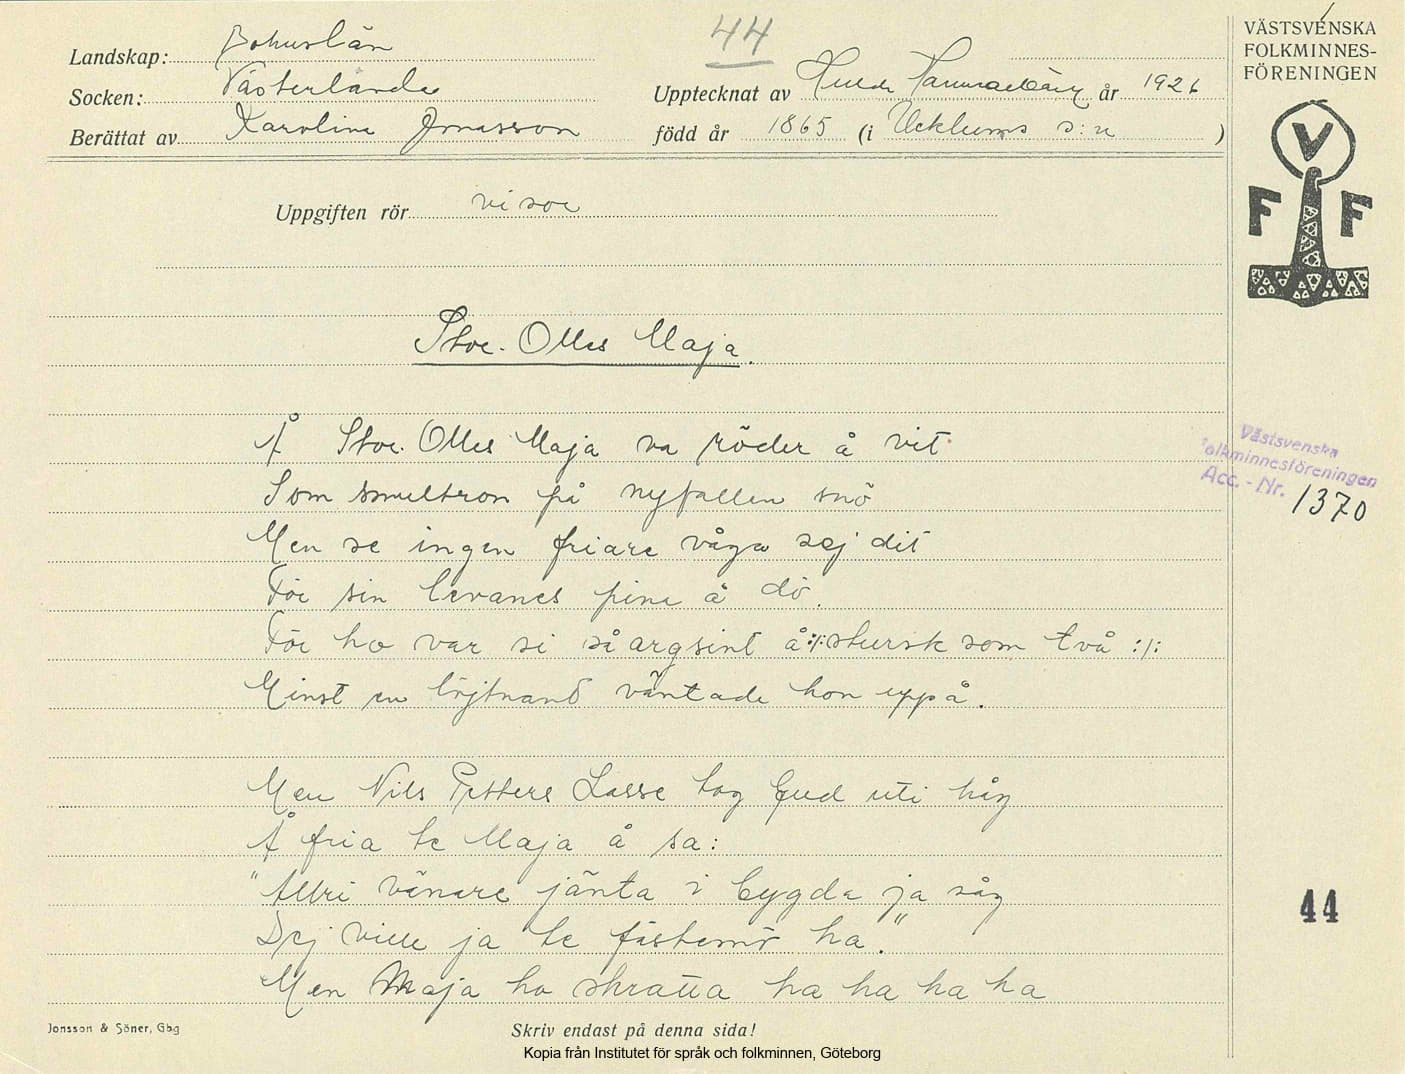 44
VÄSTSVENSKA
FOLKMINNES-
FÖRENINGEN
Landskap: Bohuslän
Socken: Västerlanda
Upptecknat av Hulda Hammarbäck år 1926
Berättat av Karoline Jonasson född år 1865 (i Ucklums s:n )
V
F F
Uppgiften rör visor
Stor-Olles Maja.
Å Stor-Olles Maja va röder å vit
Som smultron på nyfallen snö
Men se ingen friare våga sej dit
För sin levanes pina å dö.
För ho var si så argsint å :/: stursk som två :/:
Minst en löjtnand väntade hon uppå.
Men Nils Petters Lasse tog Gud uti håg
Å fria te Maja å sa:
"Allri vänare jänta i bygda ja såg
Dej ville ja te fästemö ha."
Men Maja ho skratta ha ha ha ha
Västsvenska
Folkminnesföreningen
Acc.-Nr. 1370
44
Jonsson & Söner, Gbg
Skriv endast på denna sida!
Kopia från Institutet för språk och folkminnen, Göteborg